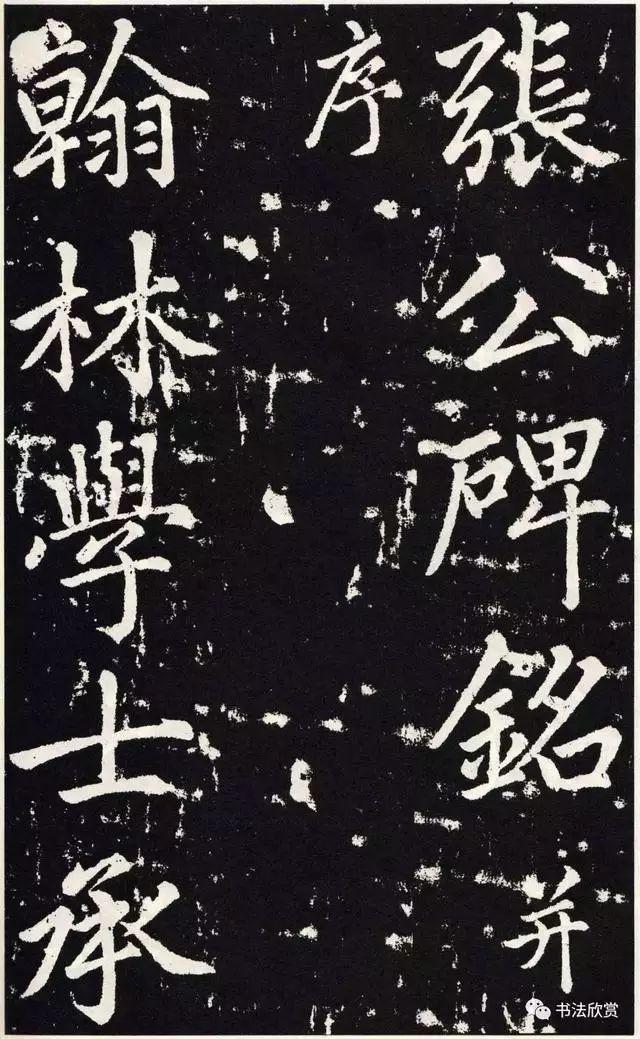 張公碑銘并
序
翰林學士承
书法欣赏